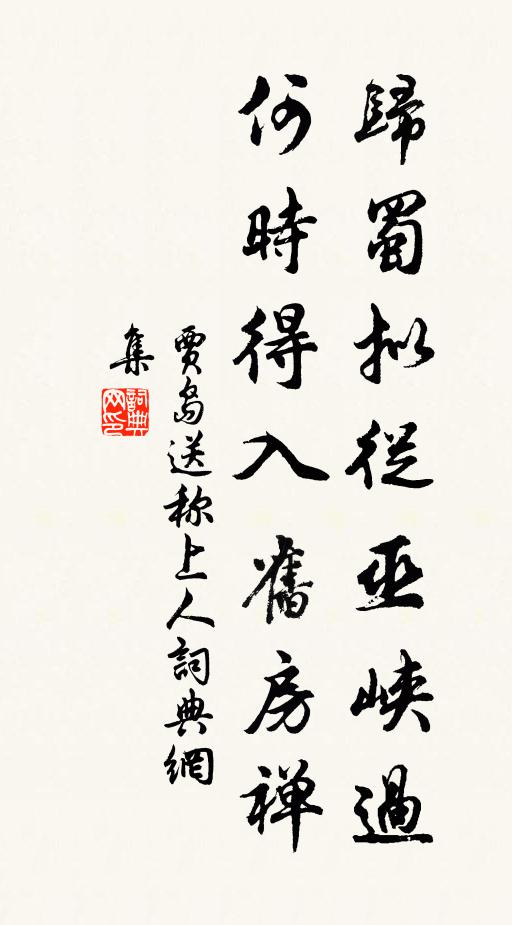 歸蜀拟從巫峽過
何時得入舊房禅
賈島送称上人詞典網
集
詞典网印